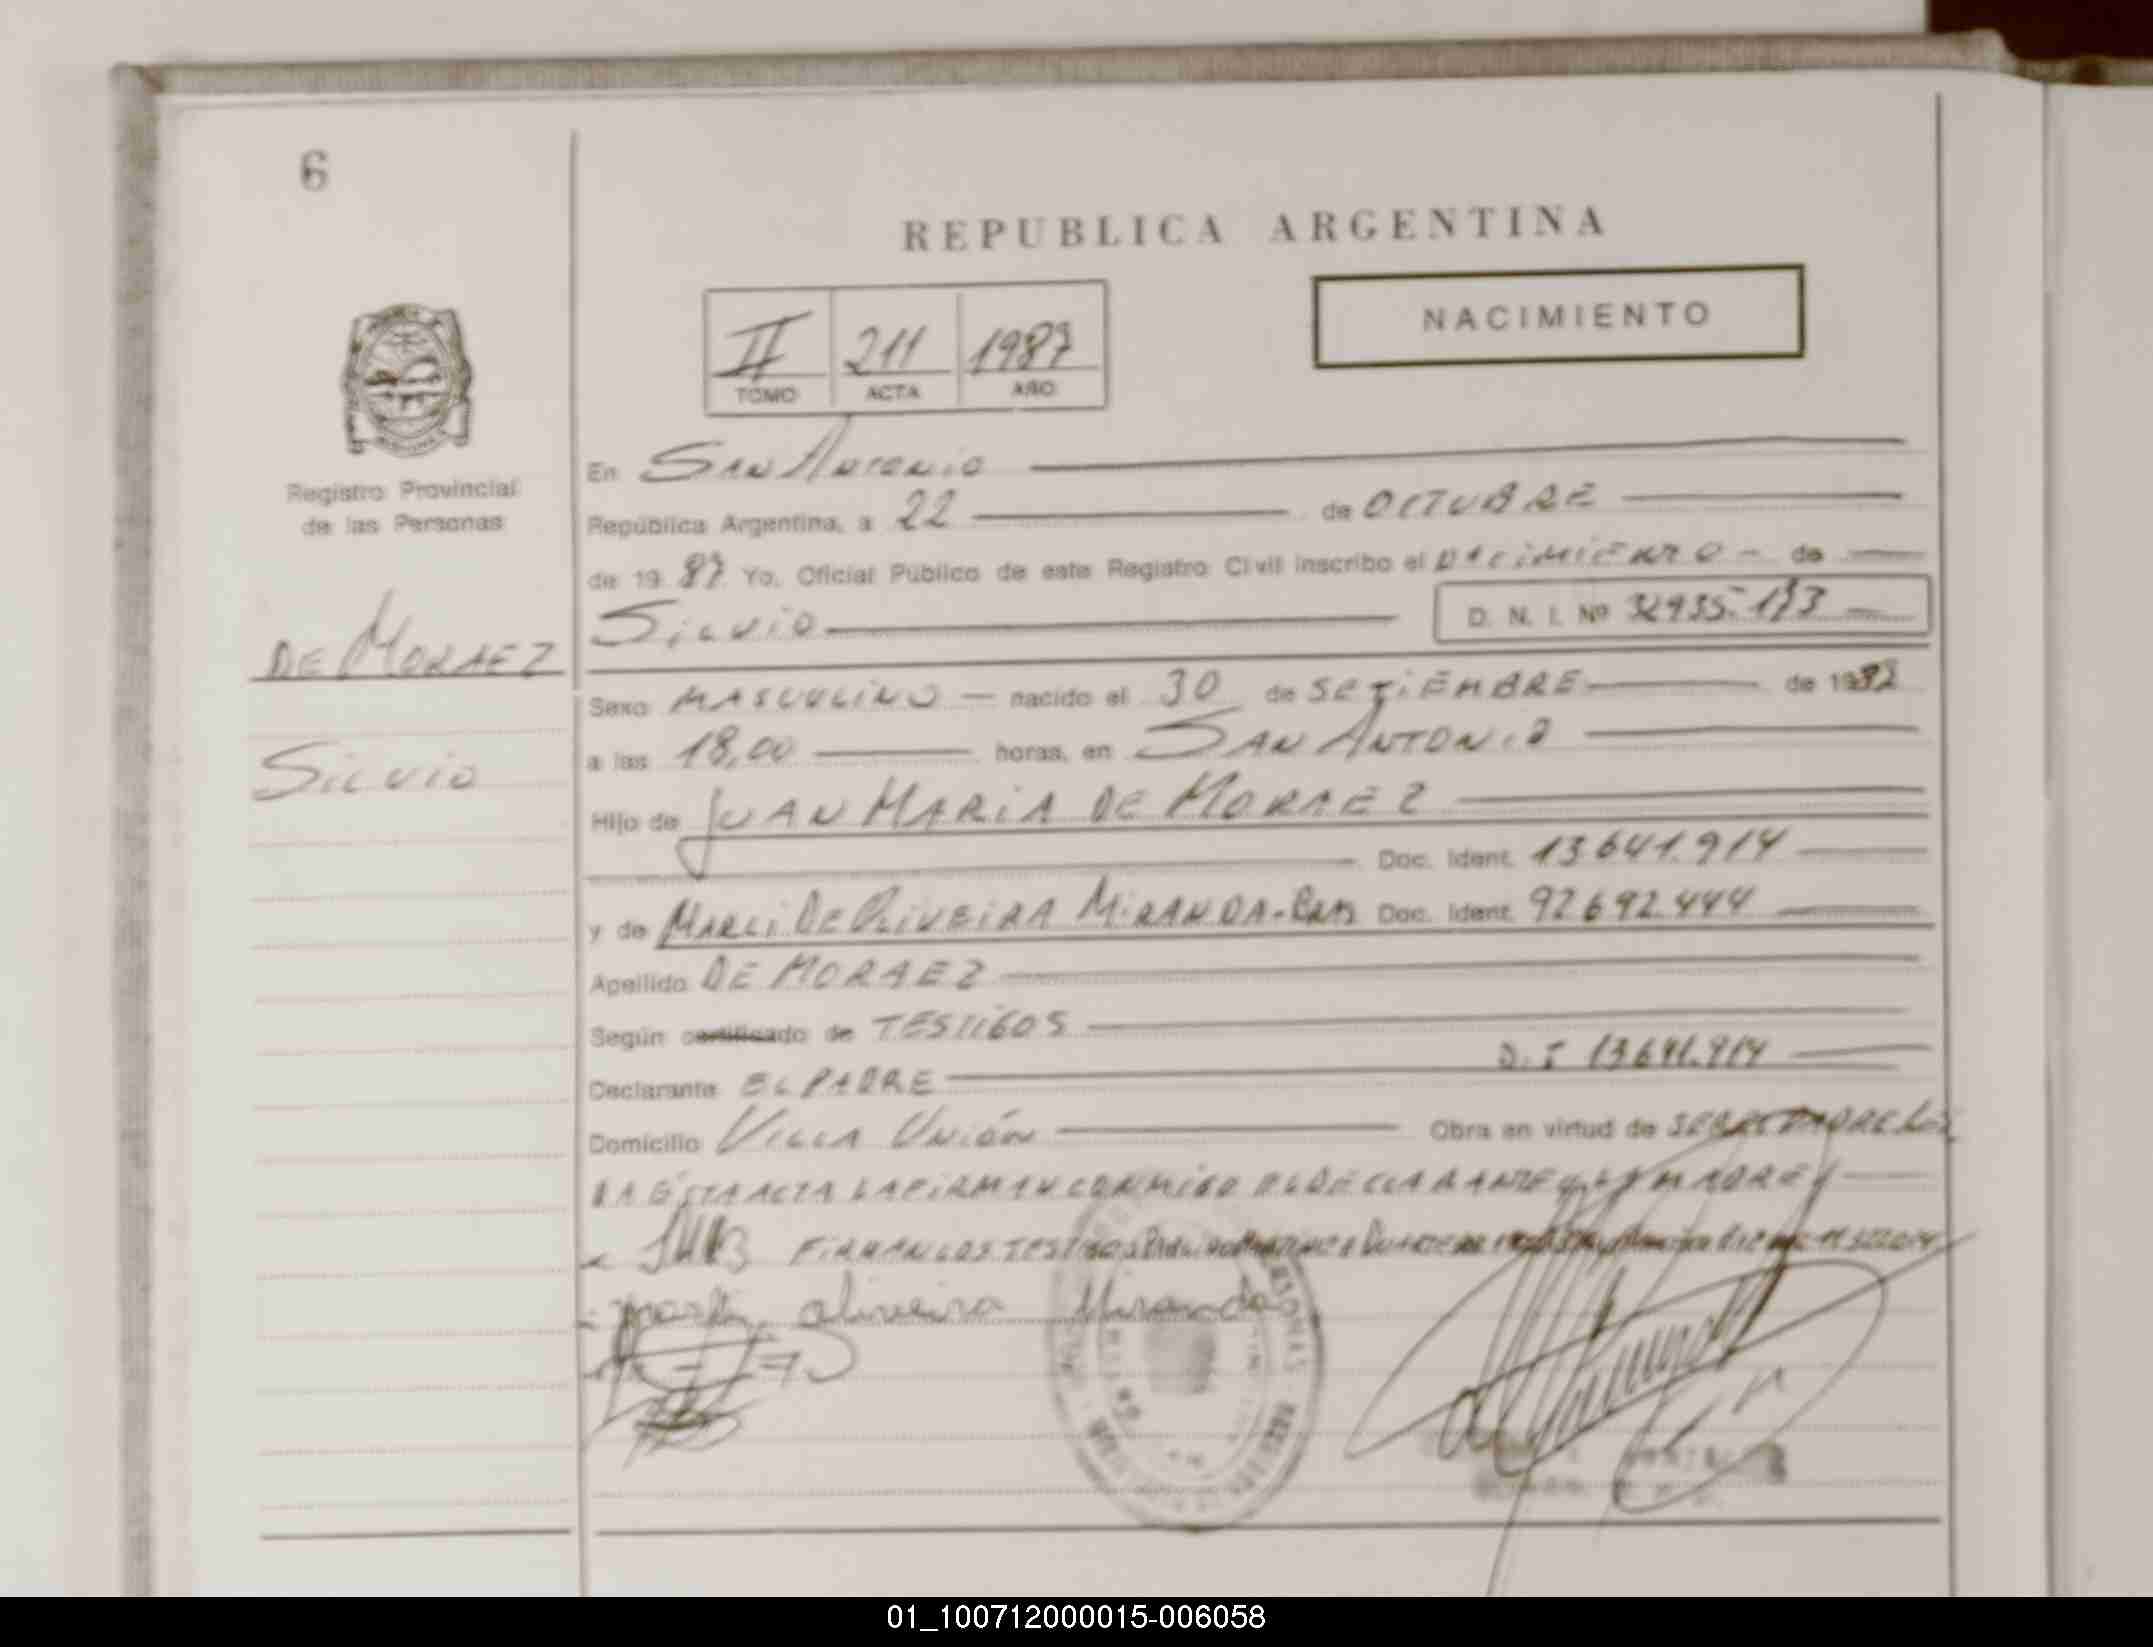 6
REPUBLICA ARGENTINA
NACIMIENTO
II 211 1987
TOMO ACTA AÑO
Registro Provincial
de las Personas
DE MORAEZ
Silvio
En San Antonio
República Argentina, a 22 de OCTUBRE
de 19 87 Yo, Oficial Público de este Registro Civil inscribo el NACIMIENTO de
Silvio D. N. I. Nº
Sexo MASCULINO nacido el 30 de SETIEMBRE de 19
a las 18,00 horas, en SAN ANTONIO
Hijo de JUAN MARIA DE MORAEZ
Doc. Ident. 13.641.914
y de MARLI DE OLIVEIRA MIRANDA-BRAS Doc. Ident. 92.692.444
Apellido DE MORAEZ
Según certificado de TESTIGOS
Declarante EL PADRE D.I 13.641.914
Domicilio Villa Unión Obra en virtud de
DA ÉSTA ACTA LA FIRMAN CONMIGO EL DECLARANTE Y LA MADRE Y
FIRMAN LOS TESTIGOS
oliveira Miranda
01_100712000015-006058